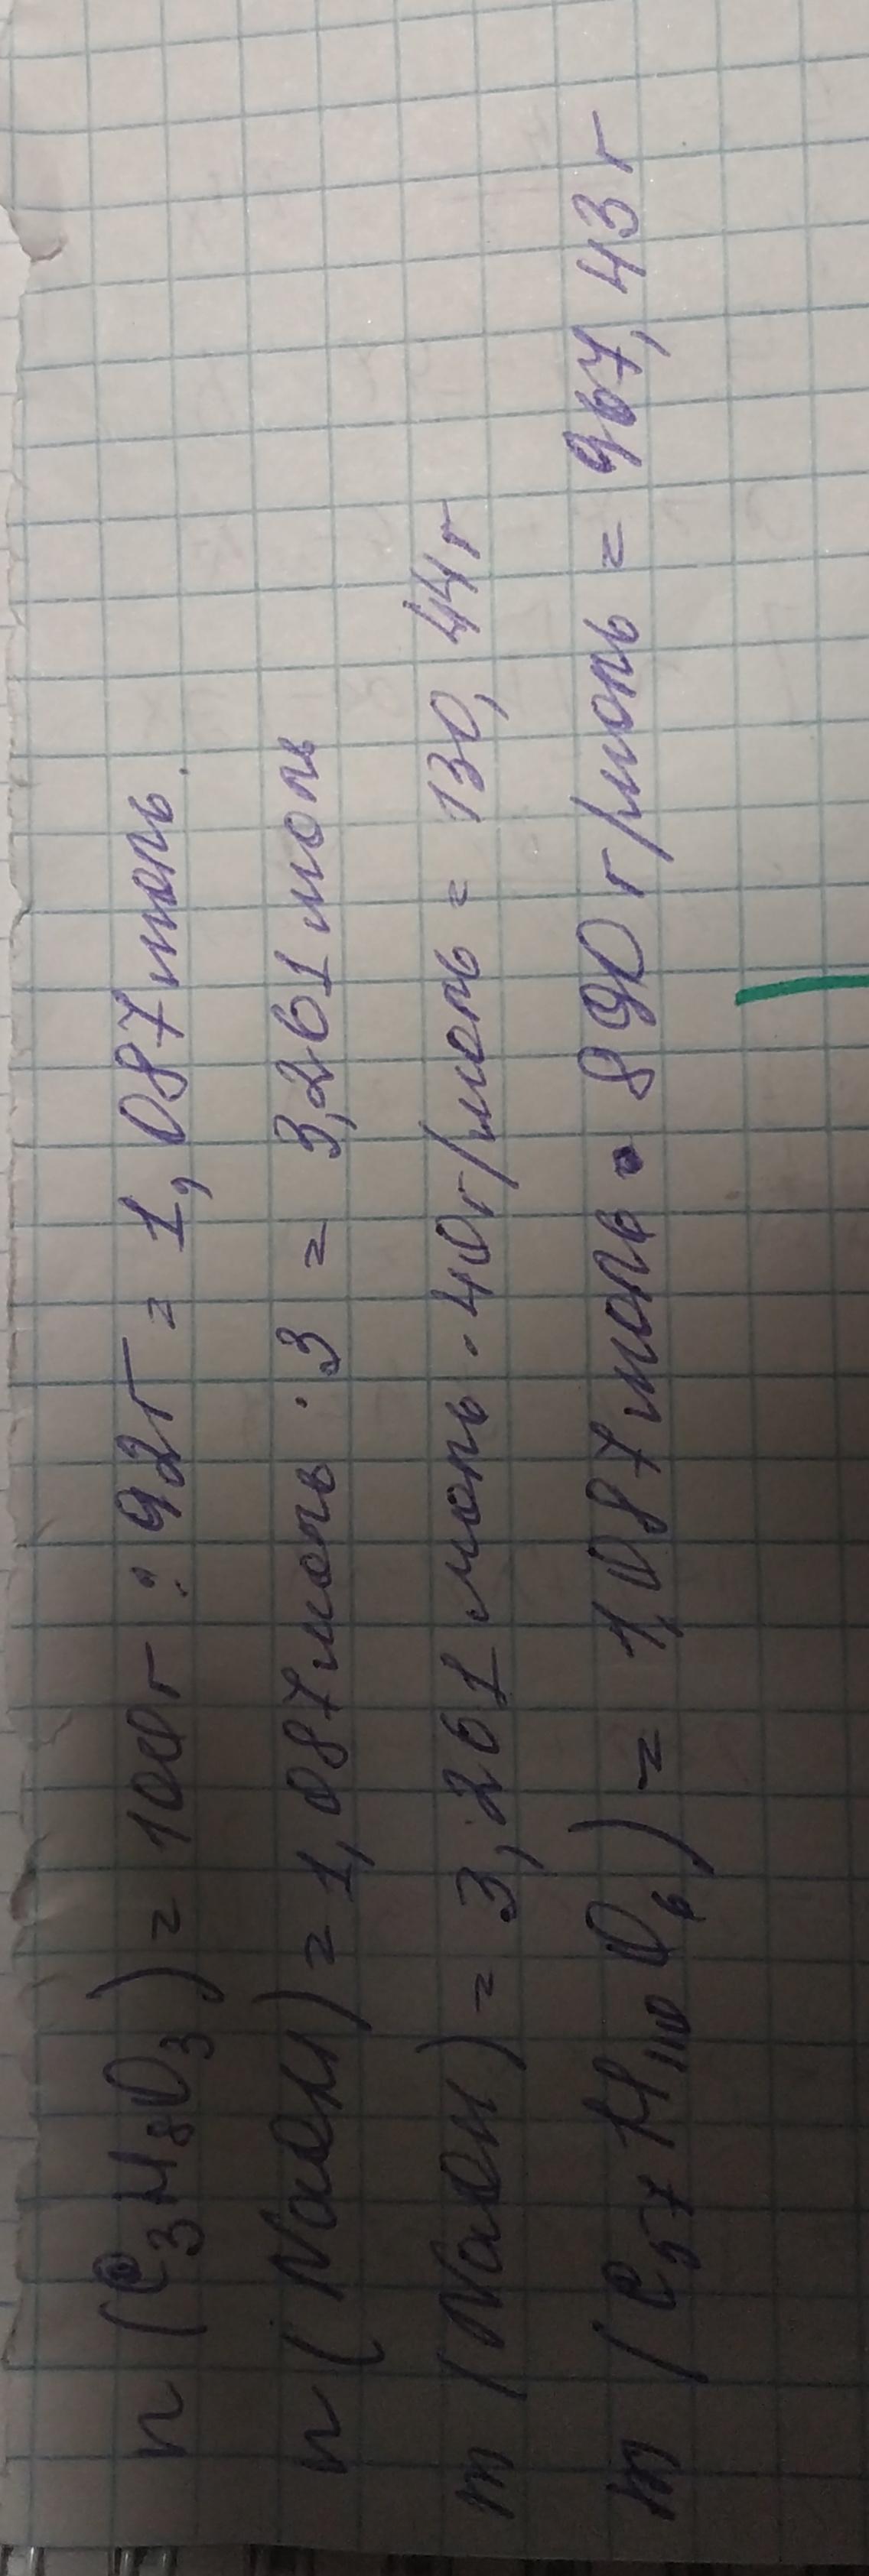 n (C₃H₈O₃) = 100г : 92г = 1,087моль.
n (NaOH) = 1,087моль · 3 = 3,261моль
m (NaOH) = 3,261 моль · 40г/моль = 130,44г
m (C₅₇H₁₁₀O₆) = 1,087моль · 890г/моль = 967,43г